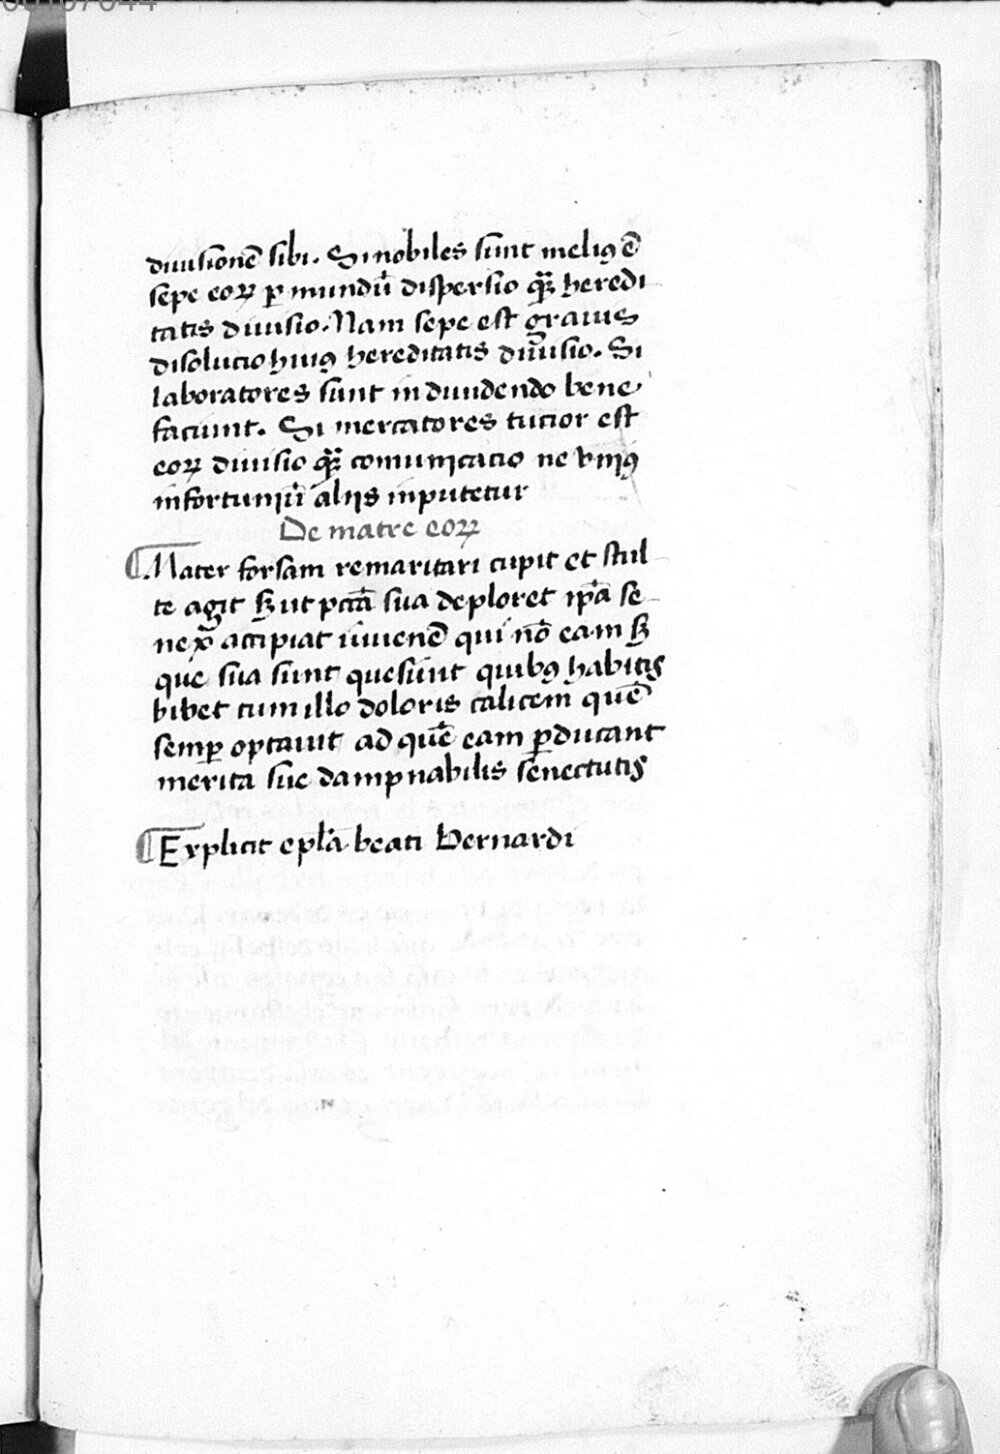 diuisionē sibi. Si nobiles sunt meliꝰ ē
sepe eoꝝ ꝑ mundū dispersio qꝫ heredi
tatis diuisio. Nam sepe est grauis
disolucio huiꝰ hereditatis diuisio. Si
laboratores sunt in diuidendo bene
faciunt. Si mercatores tutior est
eoꝝ diuisio qꝫ comunicacio ne vniꝰ
infortuniū aliis inputetur
De matre eoꝝ
¶ Mater forsam remaritari cupit et stul
te agit sꝫ ut pctā sua deploret ip̄a se
nex accipiat iuuenē qui nō eam sꝫ
que sua sunt quesiuit quibꝰ habitis
bibet cum illo doloris calicem quē
semꝑ optauit ad quē eam ꝑducant
merita sue dampnabilis senectutis
¶ Explicit epl̄a beati Bernardi